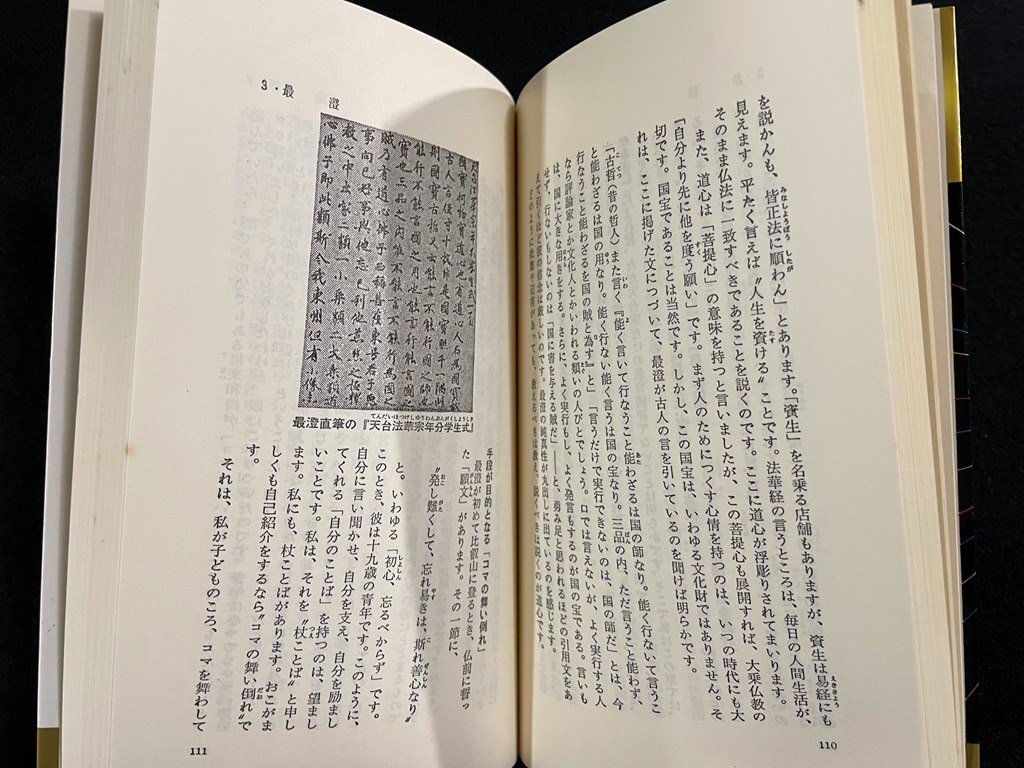 を説かんも、皆正法に順わん」とあります。「資生」を名乗る店舗もありますが、資生は易経にも
見えます。平たく言えば〝人生を資ける〟ことです。法華経の言うところは、毎日の人間生活が、
そのまま仏法に一致すべきであることを説くのです。ここに道心が浮彫りされてまいります。
また、道心は「菩提心」の意味を持つと言いましたが、この菩提心も展開すれば、大乗仏教の
「自分より先に他を度う願い」です。まず人のためにつくす心情を持つのは、いつの時代にも大
切です。国宝であることは当然です。しかし、この国宝は、いわゆる文化財ではありません。そ
れは、ここに掲げた文につづいて、最澄が古人の言を引いているのを聞けば明らかです。
「古哲(昔の哲人)また言く『能く言いて行なうこと能わざるは国の師なり。能く行ないて言うこ
と能わざるは国の用なり。能く行ない能く言うは国の宝なり。三品の内、ただ言うこと能わず、
行なうこと能わざるを国の賊と為す』と」「言うだけで実行できないのは、国の師だ」とは、今
なら評論家とか文化人とかいわれる類いの人びとでしょう。口では言えないが、よく実行する人
は、国に大きな用きをする。さらに、よく実行もし、よく発言もするのが国の宝である。言いも
せず、行ないもしないのは「国に害を与える賊だ」――と、勇み足と思われるほどの引用文をあ
えて引くほど彼の信念は厳しいのです。最澄の純真性が丸出しに出ているのを感じます。
110
3・最 澄
最澄直筆の『天台法華宗年分学生式』
手段が目的となる「コマの舞い倒れ」
最澄が初めて比叡山に登るとき、仏前に誓っ
た「願文」があります。その一節に、
〝発し難くして、忘れ易きは、斯れ善心なり〟
と。いわゆる「初心、忘るべからず」です。
このとき、彼は十九歳の青年です。このように、
自分に言い聞かせ、自分を支え、自分を励まし
てくれる「自分のことば」を持つのは、望まし
いことです。私は、それを〝杖ことば〟と申し
ます。私にも、杖ことばがあります。おこがま
しくも自己紹介をするなら〝コマの舞い倒れ〟で
す。
それは、私が子どものころ、コマを舞わして
111